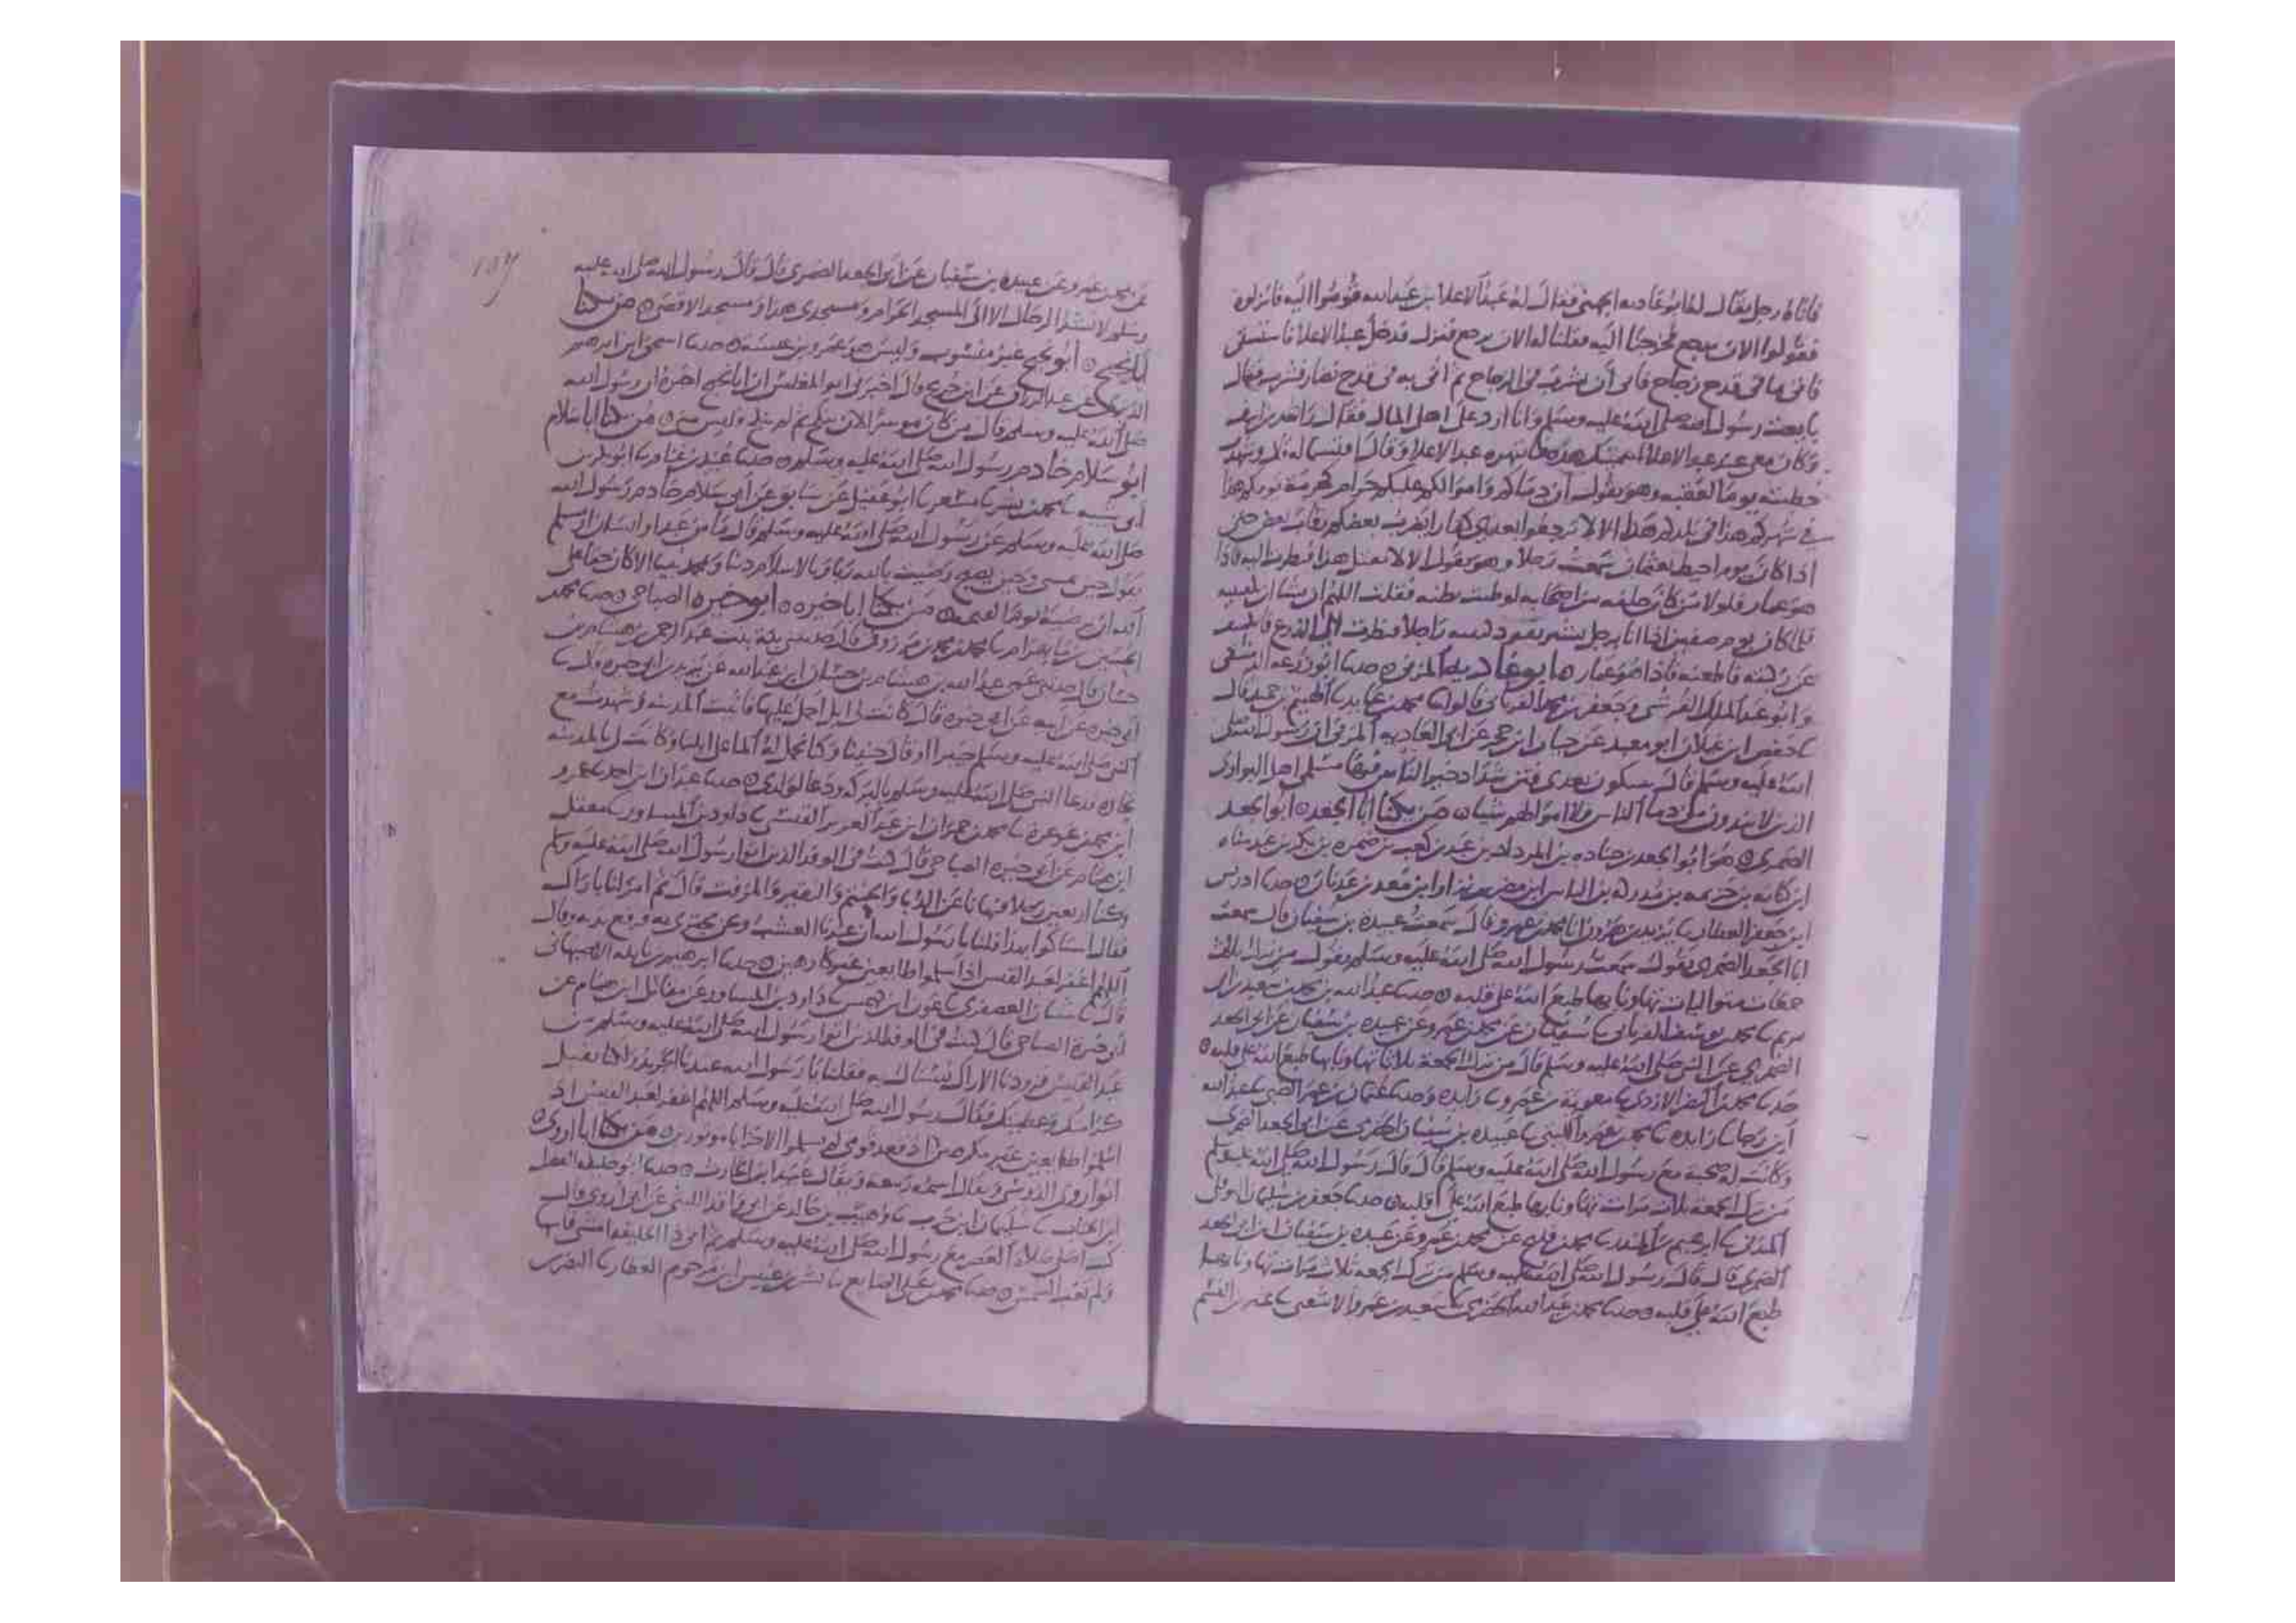 فاتاه رجل يقال له ابو غادية الجهني فقال له عبد الاعلا بن عبد الله قوموا اليه فانزلوه
فقولوا الان يرجع فخرجنا اليه فقلنا له الان يرجع فنزل فدخل عبد الاعلا فاستسقى
فاتي بماء في قدح زجاج فابى ان يشرب في الزجاج ثم اتي به في قدح نضار فشرب فقال
بايعت رسول الله صلى الله عليه وسلم وانا ارد على اهلي المال فقال
وكان معي عند عبد الاعلا
خطبنا يوم العقبة وهو يقول ان دماكم واموالكم عليكم حرام كحرمة يومكم هذا
في شهركم هذا في بلدكم هذا الا لا ترجعوا بعدي كفارا يضرب بعضكم رقاب بعض حتى
اذا كان يوم احيط بعثمان سمعت رجلا وهو يقول الا لا تقتل هذا فنظرت اليه فاذا
هو عمار فلولا من كان خلفه من اصحابه لوطنت بطنه فقلت اللهم ان تشا ان تلقينيه
فلما كان يوم صفين اذا انا برجل يسير يقود كتيبة راجلا فنظرت الى الدرع فانكشف
عن ركبته فاطعنه فاذا هو عمار ٥ ابو غادية المزني ٥ حدثنا ابو زرعة الدمشقي
وابو عبد الملك القرشي وجعفر بن محمد الفريابي قالوا نا محمد بن عايذ نا الهيثم بن حميد قال
نا حفص ابن غيلان ابو معيد عن حيان ابن حجر عن ابي الغادية المزني ان رسول الله صلى
الله عليه وسلم قال ستكون بعدي فتن شداد خير الناس فيها مسلمي اهل البوادي
الذين لا يندون من دما الناس ولا اموالهم شيا ٥ من يكنا ابا الجعد ٥ ابو الجعد
الضمري ٥ هو ابو الجعد بن جنادة بن المرداد بن عبد بن كعب بن ضمرة بن بكر بن عبد مناه
ابن كنانة بن خزيمة بن مدركة بن الياس ابن مضر بن نزار ابن معد بن عدنان ٥ حدثنا ادريس
ابن جعفر العطار نا يزيد بن هرون انا محمد بن عمرو قال سمعت عبيدة بن سفيان قال سمعت
ابا الجعد الضمري يقول سمعت رسول الله صلى الله عليه وسلم يقول من ترك ثلاث
جمعات متواليات تهاونا بها طبع الله على قلبه ٥ حدثنا عبد الله بن محمد بن سعيد بن ابي
مريم نا محمد بن يوسف الفريابي نا سفيان عن محمد بن عمرو عن عبيدة بن سفيان عن ابي الجعد
الضمري عن النبي صلى الله عليه وسلم قال من ترك الجمعة ثلاثا تهاونا بها طبع الله على قلبه ٥
حدثنا محمد بن النضر الازدي نا معوية بن عمرو نا زايدة وحدثنا عثمان بن عمر الضبي نا عبد الله
ابن رجا نا زايدة نا محمد بن عمرو الليثي نا عبيدة بن سفيان الحضرمي عن ابي الجعد الضمري
وكانت له صحبة مع رسول الله صلى الله عليه وسلم قال قال رسول الله صلى الله عليه وسلم
من ترك الجمعة ثلاث مرات تهاونا بها طبع الله على قلبه ٥ حدثنا جعفر بن سليمان النوفلي
المدني نا ابرهيم بن المنذر نا محمد بن فليح عن محمد بن عمرو عن عبيدة بن سفيان ان ابا الجعد
الضمري قال قال رسول الله صلى الله عليه وسلم من ترك الجمعة ثلاث مرات تهاونا بها
طبع الله على قلبه ٥ حدثنا محمد بن عبد الله الحضرمي نا سعيد بن عمرو الاشعثي نا عبثر بن القسم
عن محمد بن عمرو عن عبيدة بن سفيان عن ابي الجعد الضمري قال قال رسول الله صلى الله عليه
وسلم لا تشد الرحال الا الى المسجد الحرام ومسجدي هذا ومسجد الاقصى ٥ من يكنا
ابا نجيح ٥ ابو نجيح غير منسوب وليس هو عمرو بن عبسة ٥ حدثنا اسحق ابن ابرهيم
الدبري عن عبد الرزاق عن ابن جريج قال اخبرني ابو المغلس ان ابا نجيح اخبره ان رسول الله
صلى الله عليه وسلم قال من كان موسرا لان ينكح ثم لم ينكح وليس مني ٥ من يكنا ابا سلام
ابو سلام خادم رسول الله صلى الله عليه وسلم ٥ حدثنا عبيد بن غنام نا ابو بكر بن
ابي شيبة نا محمد بن بشر نا مسعر نا ابو عقيل عن سابق عن ابي سلام خادم رسول الله
صلى الله عليه وسلم عن رسول الله صلى الله عليه وسلم قال ما من عبد او انسان او مسلم
يقول حين يمسي وحين يصبح رضيت بالله ربا وبالاسلام دينا وبمحمد نبيا الا كان حقا على
الله ان يرضيه يوم القيمة ٥ من يكنا ابا خيرة ٥ ابو خيرة الصباحي ٥ حدثنا محمد
حسان قال حدثني عمي عبد الله بن هشام بن حسان ابن عبد الله عن يزيد بن ابي خيرة قال نا
ابي خيرة عن ابيه عن ابي خيرة قال كانت لي ابل احمل عليها فاتيت المدينة فشهدت مع
النبي صلى الله عليه وسلم خيبرا او قال حنينا وكنا نحمل لهم الما على ابلنا وكانت لي بالمدينة
تجارة فدعا النبي صلى الله عليه وسلم بالبركة ودعا لولدي ٥ حدثنا عبدان ابن احمد نا عمرو
ابن محمد بن عرعرة نا محمد بن حمران ابن عبد العزيز القيسي نا داود بن المساور نا معقل
ابن همام عن ابي خيرة الصباحي قال كنت في الوفد الذين اتوا رسول الله صلى الله عليه وسلم
وكنا اربعين رجلا فنهانا عن الدبا والحنتم والنقير والمزفت قال ثم امر لنا باراك
فقال استاكوا بهذا قلنا يا رسول الله ان عندنا العشب ونحن نجتزي به فرفع يديه وقال
اللهم اغفر لعبد القيس اذ اسلموا طايعين غير كارهين ٥ حدثنا ابرهيم بن نايلة الاصبهاني
قال نا شباب العصفري نا عون ابن كهمس نا داود بن المساور عن مقاتل ابن همام عن
ابي خيرة الصباحي قال كنت في الوفد الذين اتوا رسول الله صلى الله عليه وسلم من
عبد القيس فزودنا الاراك نستاك به فقلنا يا رسول الله عندنا الجريد ولكنا نقبل
كرامتك وعطيتك فقال رسول الله صلى الله عليه وسلم اللهم اغفر لعبد القيس اذ
اسلموا طايعين غير مكرهين اذ قعد قومي لم يسلموا الا خزايا موتورين ٥ من يكنا ابا اروى ٥
ابو اروى الدوسي ويقال اسمه ربيعة ويقال عبيد ابن الحارث ٥ حدثنا ابو خليفة الفضل
ابن الحباب نا سليمان ابن حرب نا وهيب بن خالد عن ابي واقد الليثي عن ابي اروى قال
كنت اصلي صلاة العصر مع رسول الله صلى الله عليه وسلم ثم اتي ذا الحليفة امشي
ولم تغب الشمس ٥ حدثنا محمد بن علي الصايغ نا بشر بن عبيس ابن مرحوم العطار نا النضر